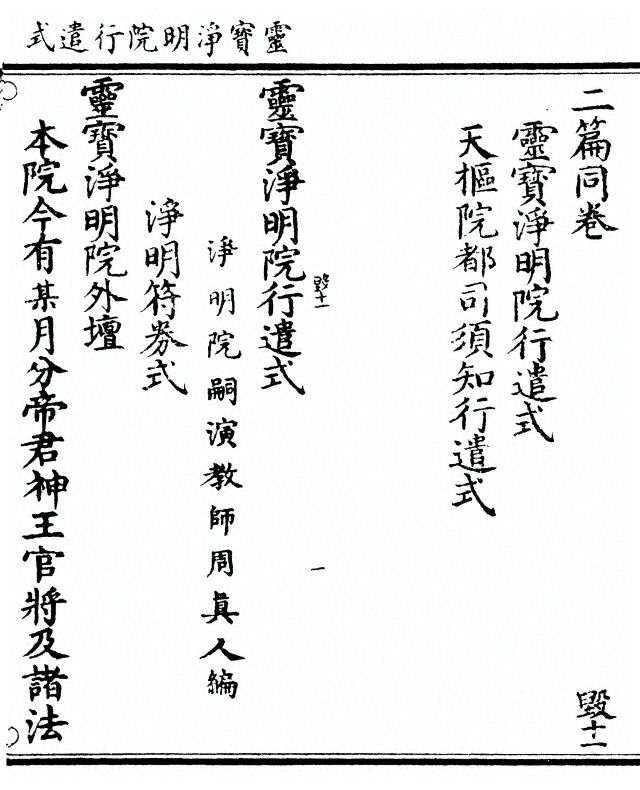 靈寶淨明院行遣式
二篇同卷
毀十一
靈寶淨明院行遣式
天樞院都司須知行遣式
毀十一
一
靈寶淨明院行遣式
淨明院嗣演教師周真人編
淨明符券式
靈寶淨明院外壇
本院今有某月分帝君神王官將及諸法